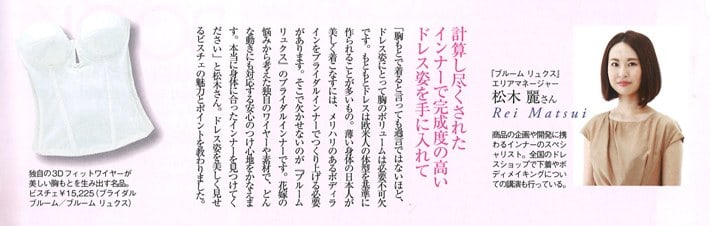 計算し尽くされた
インナーで完成度の高い
ドレス姿を手に入れて
「胸もとで着ると言っても過言ではないほど、
ドレス姿にとって胸のボリュームは必要不可欠
です。もともとドレスは欧米人の体型を基準に
作られることが多いもの。薄い身体の日本人が
美しく着こなすには、メリハリのあるボディラ
インをブライダルインナーでつくり上げる必要
があります。そこで欠かせないのが『ブルーム
リュクス』のブライダルインナーです。花嫁の
悩みから考えた独自のワイヤーや素材で、どん
な動きにも対応する安心のつけ心地をかなえま
す。本当に身体に合ったインナーを見つけてく
ださい」と松木さん。ドレス姿を美しく見せ
るビスチェの魅力とポイントを教わりました。
『ブルーム リュクス』
エリアマネージャー
松木 麗さん
Rei Matsui
商品の企画や開発に携
わるインナーのスペシ
ャリスト。全国のドレ
スショップで下着やボ
ディメイキングについ
ての講演も行っている。
独自の3Dフィットワイヤーが
美しい胸もとを生み出す名品。
ビスチェ¥15,225(ブライダル
ブルーム/ブルーム リュクス)